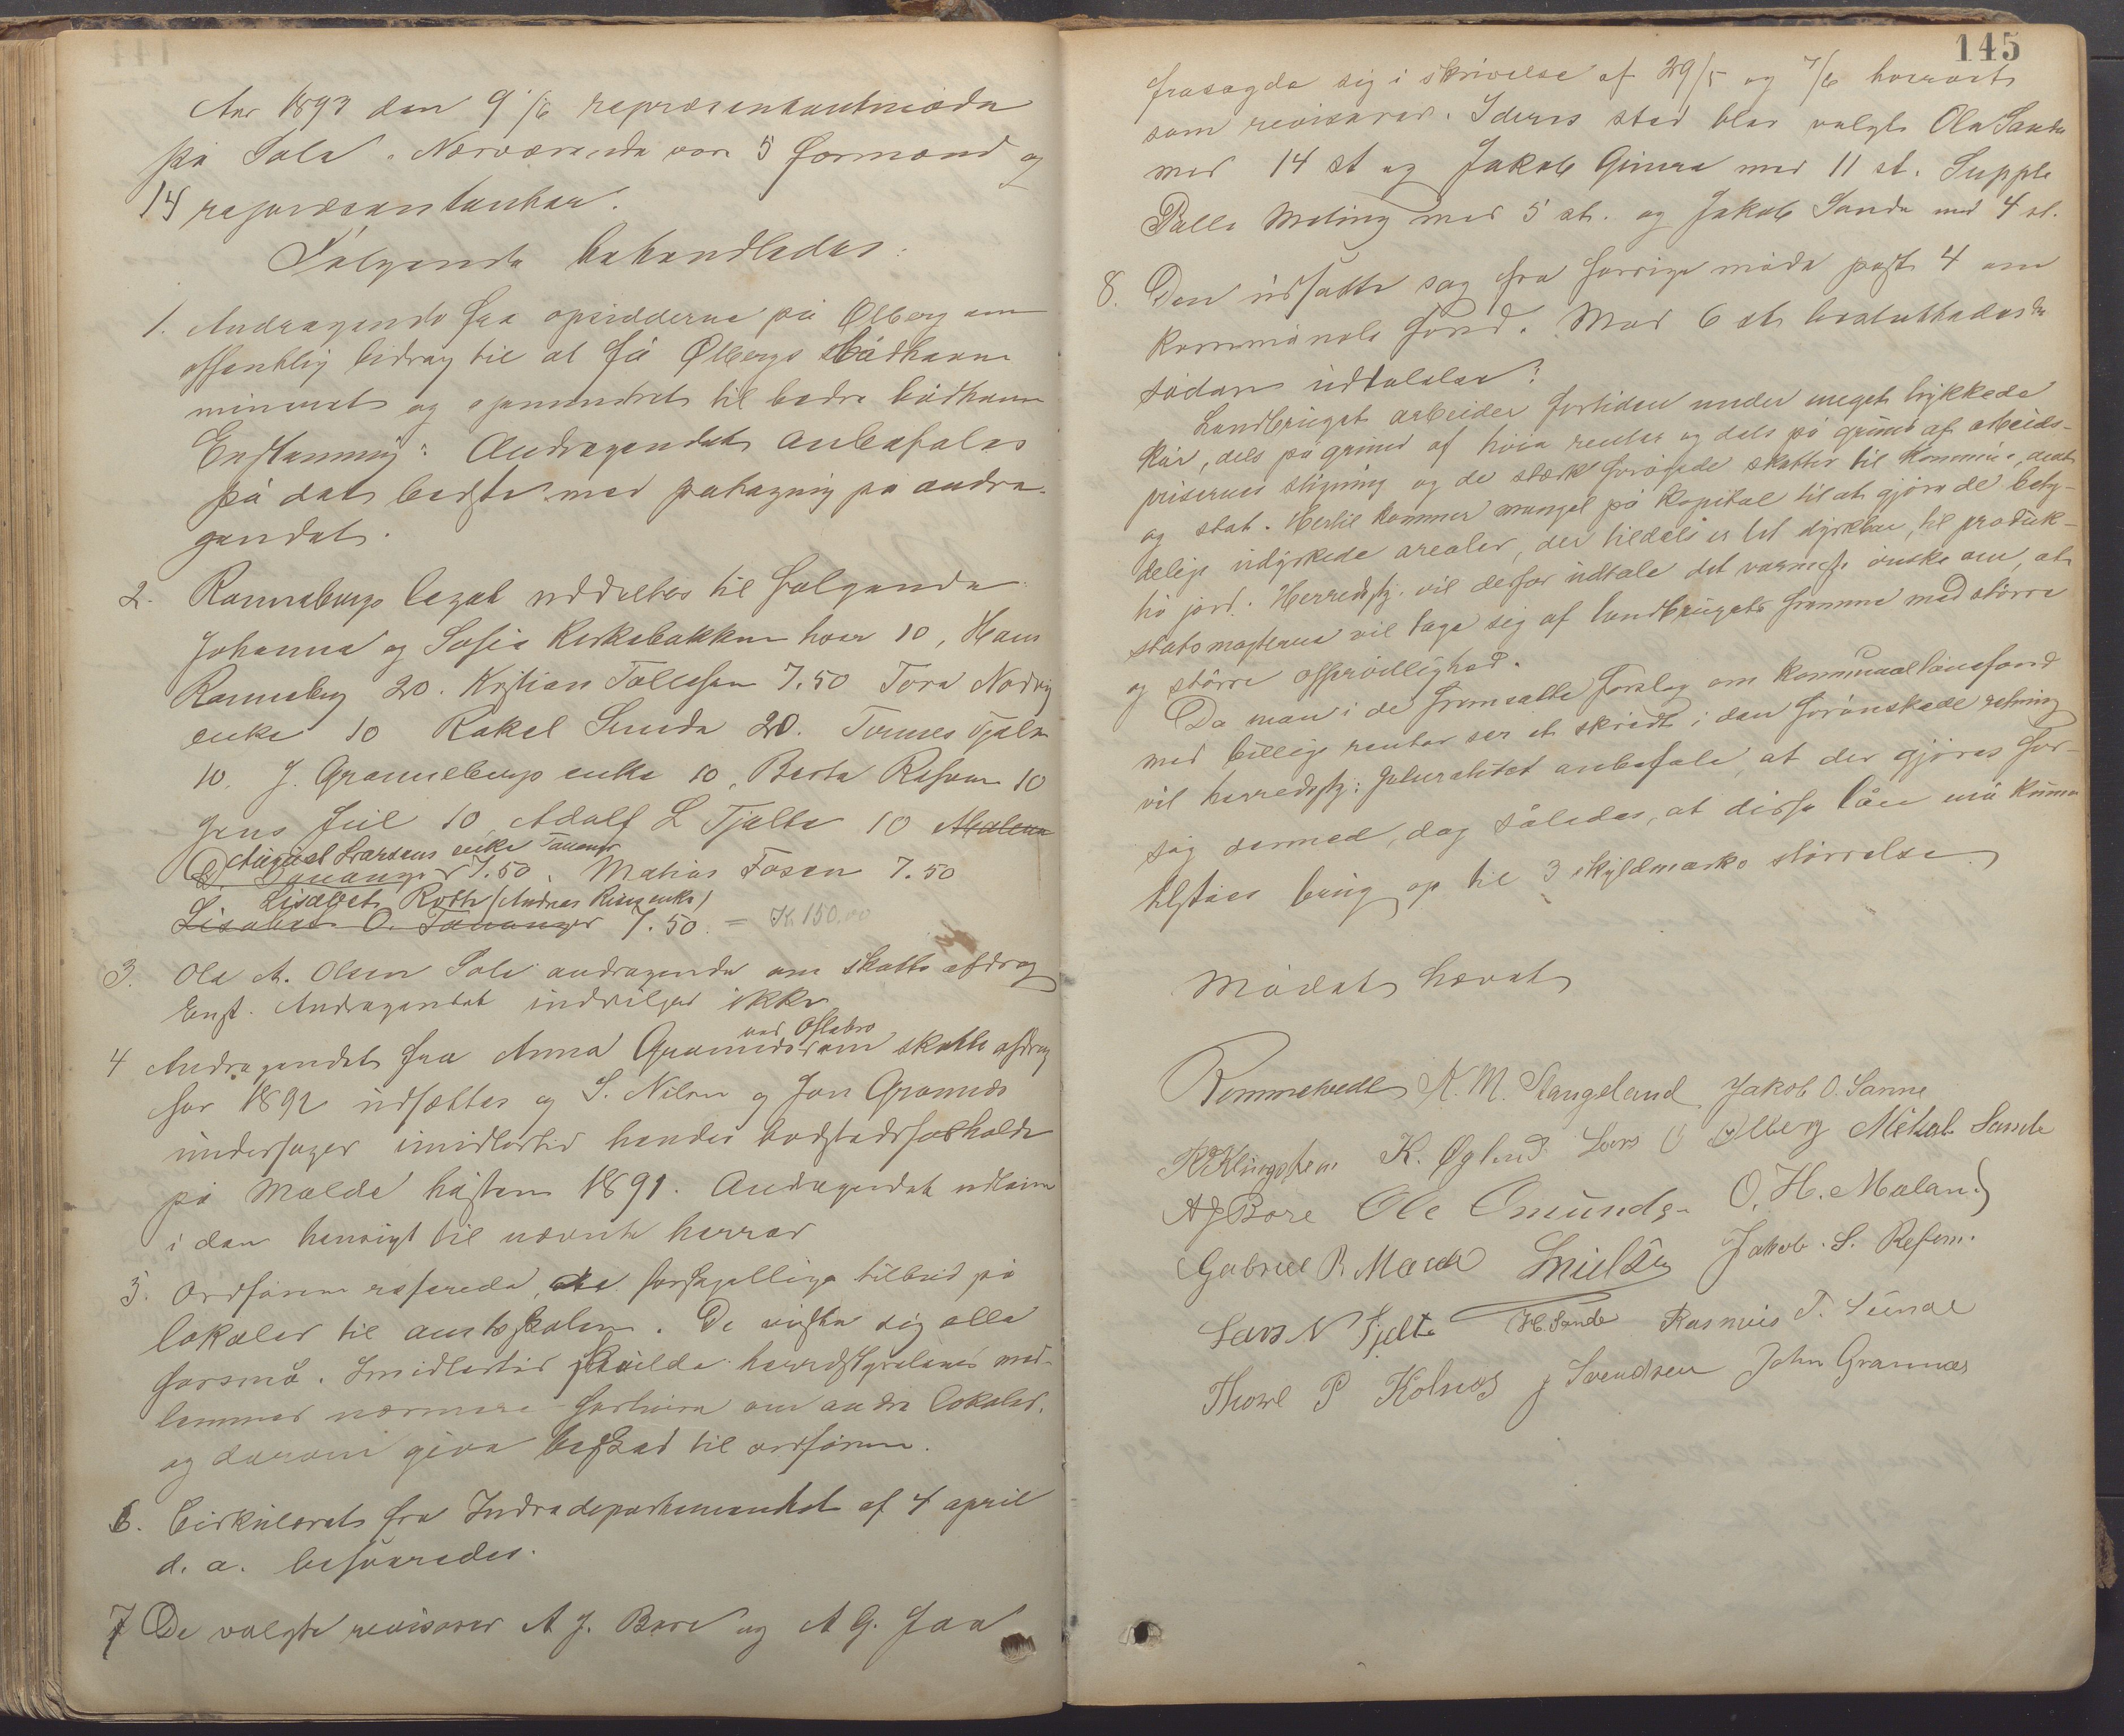 Aar 1893 den 9/6 repræsentantmøde
på Sola. Nærværende var 5 formænd og
14 repræsentanter.
Følgende behandledes:
1. Andragende fra opsidderne på Ølberg om
offentlig bidrag til at få Ølbergs bådhavn
mineret og opmudret til bedre bådhavn
Enstemmig: Andragendet anbefales
på det bedste med påtegning på andra-
gendet.
2. Rannebergs legat uddeltes til følgende
Johanna og Sofia Kirkebakken hver 10, Hans
Ranneberg 20. Kristian Tollefsen 7.50 Tora Nordvig
enke 10 Rakel Sunde 20. Tønnes Tjelta
10. J. Grannebergs enke 10, Berta Refsum 10
Jens Jeil 10 Adolf L Tjelta 10 Malena
August Larsens enke Tananger
D. Tananger 7.50. Matias Fosen 7.50
Lisabet Roth (Andreas Risa enke)
Lisabet O. Tananger 7.50. = K 150.00
3. Ola A. Olsen Sola andragende om skatte afdrag
Enst. Andragendet indvilges ikke
ved Oftebro
4 Andragendet fra Anna Grannes om skatte afdrag
for 1892 udsættes og S. Nilsen og Jon Grannes
undersøger imidlertid hendes bostedsforholde
på Molde høsten 1891. Andragendet udlaan
i den hensigt til nævnte herrer
5. Ordføren refererede, forskjellige tilbud på
lokaler til amtsskolen. De viste sig alle
forsmå. Imidlertid skulde herredstyrelsens med-
lemmer nærmere forhøre om andre lokaler,
og derom give besked til ordføren.
6. Cirkulæret fra Indredepartementet af 4 april
d. a. besvaredes.
7 De valgte revisorer A J. Bore og A G. Joa
145
frasagde sig i skrivelse af 29/5 og 7/6 hvervet
som revisorer. I deres sted blev valgt Ola Sande
med 14 st og Jakob Gimra med 11 st. Supple
Palle Meling med 5 st. og Jakob Sande med 4 st.
8. Den udsatte sag fra forrige møde post 4 om
kommunale fond. Med 6 st. besluttedes
sådan udtalelse:
Landbruget arbeider fortiden under meget trykkede
kår, dels på grund af høie renter og dels på grund af arbeids-
prisernes stigning og de stærkt forøgede skatter til kommune, amt
og stat. Hertil kommer mangel på kapital til at gjøre de bety-
delige udyrkede arealer, der tildels er let dyrkbar, til produk-
tiv jord. Herredsst. vil derfor udtale det varmeste ønske om, at
statsmagterne vil tage sig af landbrugets fremme med større
og større offervillighed.
Da man i de fremsatte forslag om kommunallånefond
med billige renter ser et skridt i den forønskede retning
vil herredsst: pluralitet anbefale, at der gjøres for-
søg dermed, dog således, at disse lån må kunne
tilståes brug op til 3 skyldmarks størrelse
Mødet hævet
Rommetvedt K. M. Stangeland Jakob O. Sanne
K. Øglend Lars O Ølberg Mikal Sande
A J Bore Ole Omunds. O. H. Mæland
Gabriel R. Mæland SNielsen Jakob. S. Refsn.
Lars N Tjelta H. Sande Rasmus T. Sunde
Thore P Kolnes J Svendsen John Grannæs